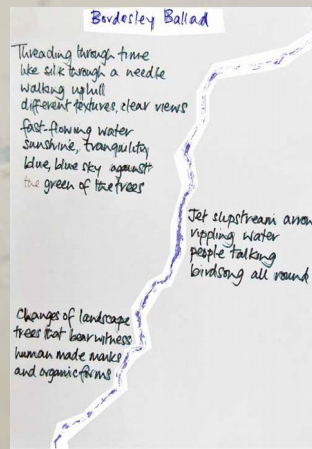 Bordesley Ballad
Threading through time
like silk through a needle
walking uphill
different textures, clear views
fast-flowing water
sunshine, tranquility
blue, blue sky against
the green of the trees
Jet slipstream arrow
rippling water
people talking
birdsong all round
Changes of landscape
trees that bear witness
human made marks
and organic forms